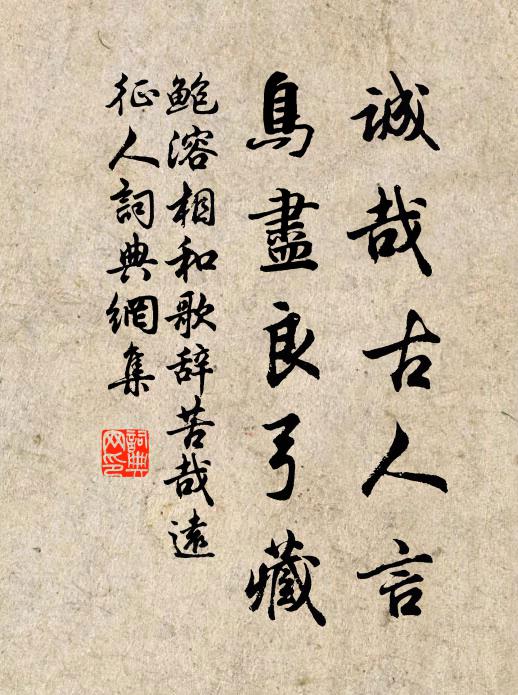 誠哉古人言
鳥盡良弓藏
鲍溶相和歌辞苦哉遠
征人詞典網集
詞典網印